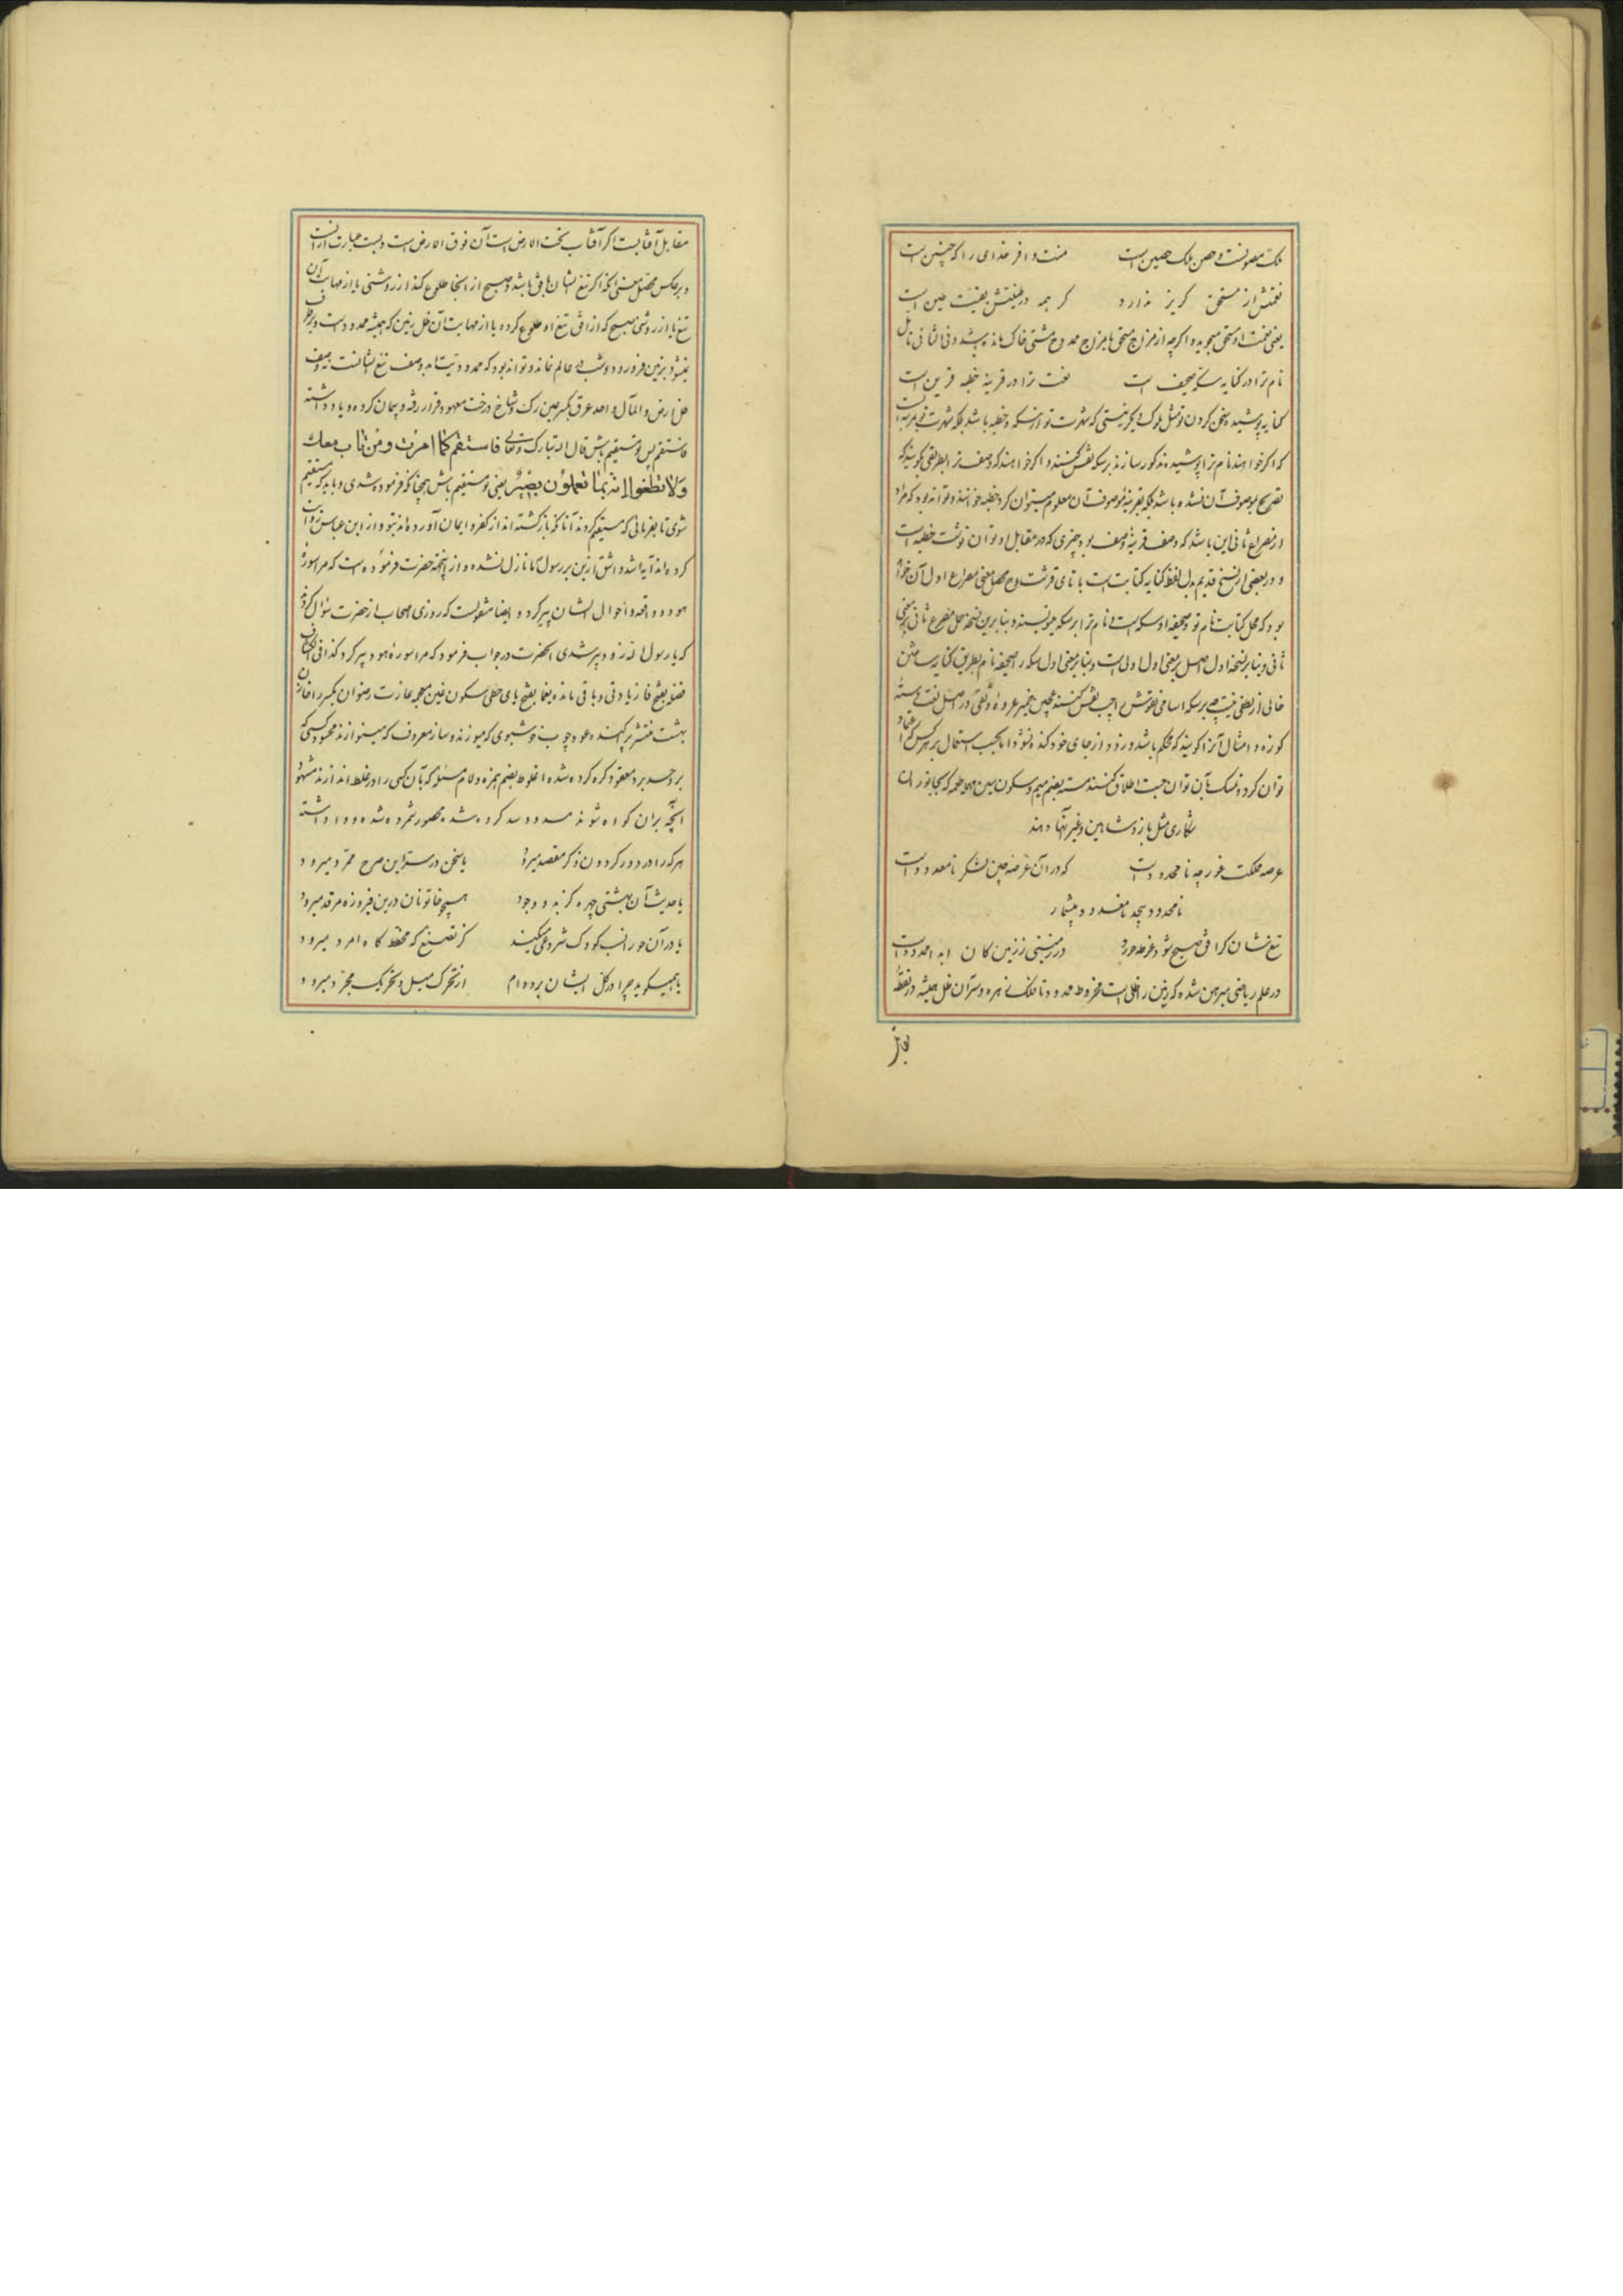 ملک مصونست و حصن ملک حصین است منت وافر خدای را که چنین است
نعتش از مستحق گریز ندارد گر همه در طینتش بقیت طین است
یعنی نعمت او مستحق میجوید و اگرچه از مزاج مستحق تا مزاج ممدوح مشتی خاک مانده باشد وفی الثانی تأمل
نام ترا در کنایه سکه صحیفه است نعت ترا در قرینه خطبه قرین است
کنایه پوشیده سخن کردن تو مثل ملوک دیگر نیستی که شهرت تو از سکه و خطبه باشد بلکه شهرت تو بمرتبه ایست
که اگر خواهند نام ترا پوشیده مذکور سازند بر سکه نقش کنند و اگر خواهند که وصف ترا بطریقی گویند که
تصریح بموصوف آن نشده باشد بلکه بقرینه موصوف آن معلوم میتوان کرد خطبه خوانند و تواند بود که مراد
از مصراع ثانی این باشد که وصف قرینه وصف بود و چیزی که در مقابل او توان نوشت خطبه است
و در بعضی از نسخ قدیم بدل لفظ کنایه کتابت است با تای قرشت و محصل معنی مصراع اول آن خواهد
بود که محل کتابت نام تو و صحیفه او سکه است نام ترا بر سکه مینویسند و بنابرین نسخه حل مصرع ثانی بر معنی
ثانی و بنابر نسخه اول اصل بر معنی اول اولی است و بنابر معنی اول سکه را صحیفه نام بطریق کنایه ساختن
خالی از لطفی نیست چه بر سکه اسامی نقوش را چپ نقش کنند همچنین بخیر عروه وثقی در اصل لغت دسته
کوزه و امثال آنرا گویند که محکم باشد و زود از جای خود کنده نشود اما بحسب استعمال بر هر کس که اعتماد
توان کرد و تمسک بآن توان جست اطلاق کنند مسته بضم میم و سکون سین مهمله طعمه که بجانوران
شکاری مثل باز و شاهین و غیر آنها دهند
عرصه مملکت غور چه نامحدود است که در آن عرصه چنین لشکر نامعدود است
نامحدود بیحد نامعدود بیشمار
تیغشان گر افق صبح شود غوطه خورد در زمینی ز زمین کان ابدا محدود است
در علم ریاضی مبرهن شده که زمین را ظلی است مخروط محدود تا فلک زهره و سر آن ظل همیشه در نقطه
نظیر
مقابل آفتابست اگر آفتاب تحت الارض است آن فوق الارض است و شب عبارت از آنست
و برعکس محصل معنی آنکه اگر تیغ ایشان افق باشد و صبح از آنجا طلوع کند از روشنی یا از مهابت آن
تیغ یا از روشنی صبح که از افق تیغ او طلوع کرده یا از مهابت آن ظل زمین که همیشه محدود است و برطرف
نمیشود بزمین فرو رود و شب در عالم نماند و تواند بود که محدودیت ابد وصف تیغ ایشانست نه وصف
ظل ارض والمآل واحد عرق بکسر عین رگ و شاخ درخت معهود قرار رفته و پیمان کرده و یاد داشته
فاستقم پس تو مستقیم باش قال الله تبارک وتعالی فاستقم کما امرت ومن تاب معک
ولا تطغوا انه بما تعملون بصیر یعنی تو مستقیم باش همچنانکه فرموده شدی و باید که مستقیم
شوی تا بفرمانی که مستقیم گردند آنانکه بازگشته اند از کفر و ایمان آورده اند بتو و از ابن عباس روایت
کرده اند آیه اشد و اشق ازین بر رسول ما نازل نشده و از اینجهة حضرت فرموده است که مرا سوره
هود و واقعه و احوال ایشان پیر کرد و ایضا منقولست که روزی اصحاب از حضرت سؤال کردند
که یا رسول الله زود پیر شدی آنحضرت در جواب فرمود که مرا سوره هود پیر کرد کذا فی الکشاف
فضله بفتح فا زیادتی و باقی مانده یغما بفتح یای حطی سکون غین معجمه غارت رضوان بکسر را خازن
بهشت منتشر پراکهنده عود چوب خوشبوی که میسوزند و ساز معروف که مینوازند محسود کسی که
بر وحسد برد معقود گره کرده شده اغلوطه بضم همزه و لام مسئله که بآن کسی را در غلط اندازند مشهود
آنچه بر آن گواه شوند مسدود سد کرده شده محصور شمرده شده و واداشته
هر که را در دور گردون ذکر مقصد میرود یا سخن در سر این صرح ممرد میرود
یا حدیث آن بهشتی چهره کز بدو وجود همچو خاتونان درین فیروزه مرقد میرود
یا در آن حورانسب کودک شروعی میکنند کز تصنع که مخطط گاه امرد میرود
یا همیگوید چرا در کل ایشان بر دوام از تحرک میل و تحریک مجرد میرود